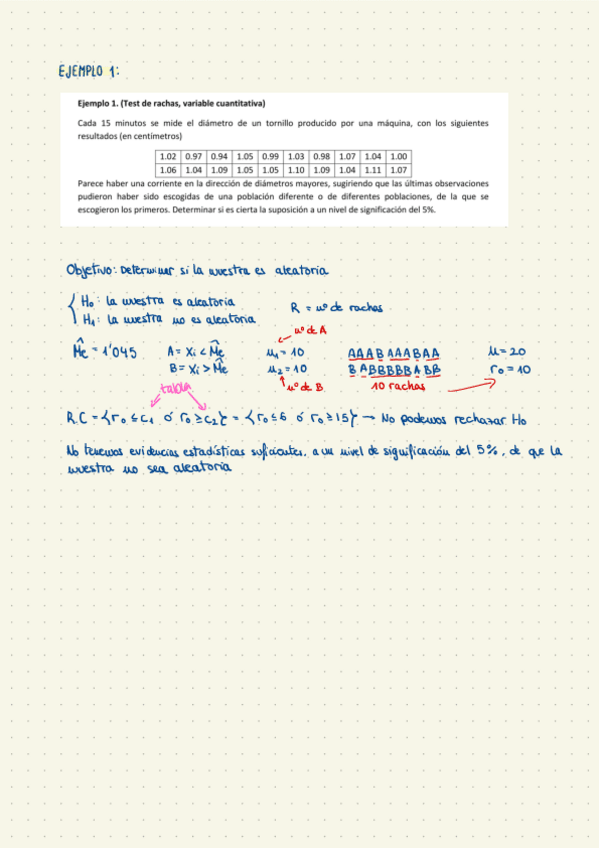 EJEMPLO 1:
Ejemplo 1. (Test de rachas, variable cuantitativa)
Cada 15 minutos se mide el diámetro de un tornillo producido por una máquina, con los siguientes
resultados (en centímetros)
1.02 0.97 0.94 1.05 0.99 1.03 0.98 1.07 1.04 1.00
1.06 1.04 1.09 1.05 1.05 1.10 1.09 1.04 1.11 1.07
Parece haber una corriente en la dirección de diámetros mayores, sugiriendo que las últimas observaciones
pudieron haber sido escogidas de una población diferente o de diferentes poblaciones, de la que se
escogieron los primeros. Determinar si es cierta la suposición a un nivel de significación del 5%.
Objetivo: Determinar si la muestra es aleatoria
H₀: la muestra es aleatoria
R = nº de rachas
H₁: la muestra no es aleatoria
nº de A
M̂e = 1'045 A = Xi < M̂e n₁ = 10 AAABAAABAA n = 20
B = Xi > M̂e n₂ = 10 BABBBBBABB r₀ = 10
tabla nº de B 10 rachas
R.C = {r₀ ≤ c₁ ó r₀ ≥ c₂} = {r₀ ≤ 6 ó r₀ ≥ 15} → No podemos rechazar H₀
No tenemos evidencias estadísticas suficientes, a un nivel de significación del 5%, de que la
muestra no sea aleatoria